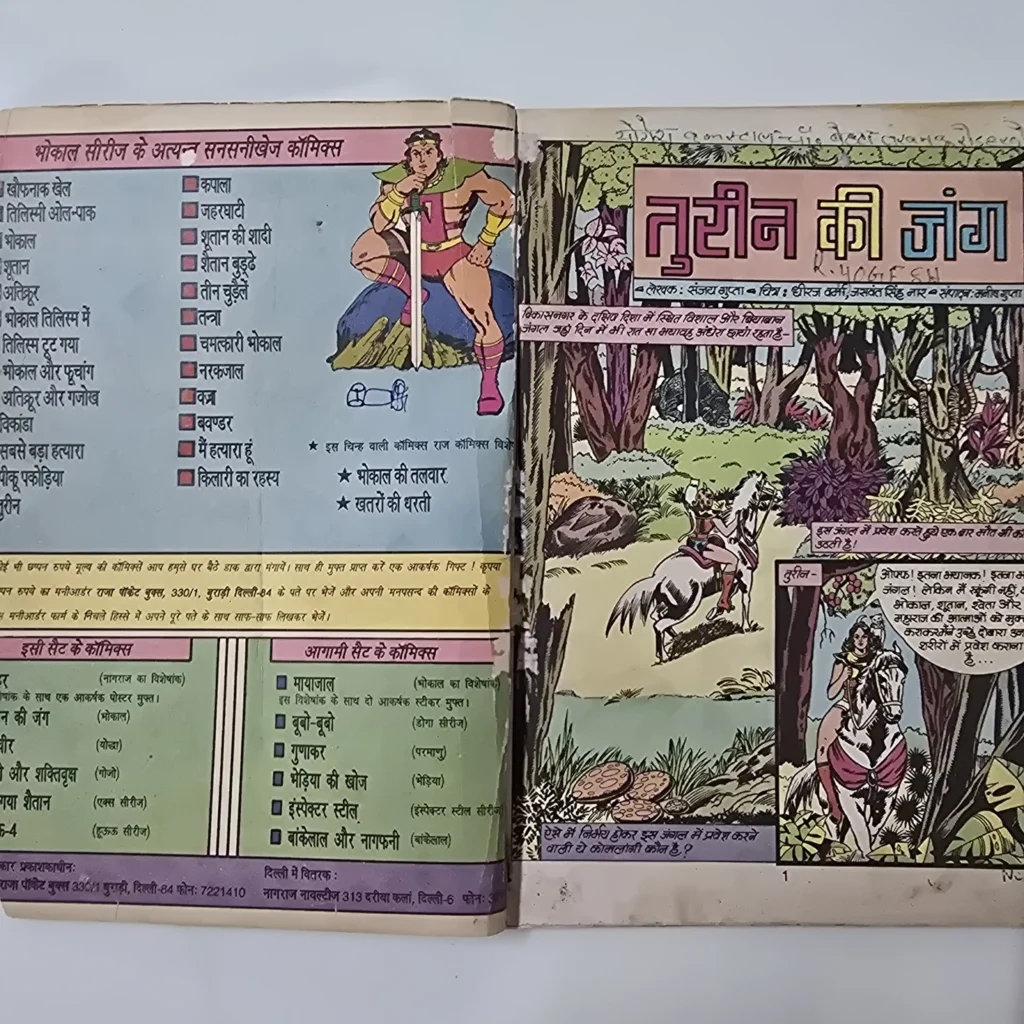 भोकाल सीरीज के अत्यन्त सनसनीखेज कॉमिक्स
खौफनाक खेल
तिलिस्मी ओल-पाक
भोकाल
शूतान
अतिक्रूर
भोकाल तिलिस्म में
तिलिस्म टूट गया
भोकाल और फूचांग
अतिक्रूर और गजोख
विकांडा
सबसे बड़ा हत्यारा
पीकू पकोड़िया
तुरीन
कपाला
जहरघाटी
शूतान की शादी
शैतान बुड्ढे
तीन चुड़ैलें
तन्त्रा
चमत्कारी भोकाल
नरकजाल
वज्रा
बवण्डर
मैं हत्यारा हूं
किलारी का रहस्य
★ इस चिन्ह वाली कॉमिक्स राज कॉमिक्स विशे
★ भोकाल की तलवार
★ खतरों की धरती
ई भी छप्पन रुपये मूल्य की कॉमिक्सें आप हमसे घर बैठे डाक द्वारा मंगायें। साथ ही मुफ्त प्राप्त करें एक आकर्षक गिफ्ट ! कृपया
पन रुपये का मनीआर्डर राजा पॉकेट बुक्स, 330/1, बुराड़ी, दिल्ली-84 के पते पर भेजें और अपनी मनपसन्द की कॉमिक्सों के
मनीआर्डर फार्म के निचले हिस्से में अपने पूरे पते के साथ साफ-साफ लिखकर भेजें।
इसी सैट के कॉमिक्स
(नागराज का विशेषांक)
षांक के साथ एक आकर्षक पोस्टर मुफ्त।
न की जंग (भोकाल)
वीर (योद्धा)
और शक्तिवृक्ष (गोजो)
गया शैतान (एक्स सीरीज)
6-4 (हूऊऊ सीरीज)
आगामी सैट के कॉमिक्स
मायाजाल (भोकाल का विशेषांक)
इस विशेषांक के साथ दो आकर्षक स्टीकर मुफ्त।
बूबो-बूबो (डोगा सीरीज)
गुणाकर (परमाणु)
भेड़िया की खोज (भेड़िया)
इंस्पेक्टर स्टील (इंस्पेक्टर स्टील सीरीज
बांकेलाल और नागफनी (बांकेलाल)
कार प्रकाशकाधीनः
राजा पॉकेट बुक्स 330/1 बुराड़ी, दिल्ली-84 फोनः 7221410
दिल्ली में वितरक :
नागराज नावल्टीज 313 दरीबा कलां, दिल्ली-6 फोनः
तुरीन की जंग
R.YOGESH
लेखक : संजय गुप्ता चित्र : धीरज वर्मा, जसवंत सिंह नार संपादक : मनीष गुप्ता
विकासनगर के दक्षिण दिशा में स्थित विशाल और बियाबान
जंगल जहाँ दिन में भी रात सा भयावह अंधेरा छाया रहता है-
इस जंगल में प्रवेश करते हुये एक बार मौत भी कां
उठती है!
तुरीन-
ओफ्फ! इतना भयानक! इतना
जंगल! लेकिन मैं रुकूंगी नहीं,
भोकाल, शूतान, श्वेता और
महाराज की आत्माओं को मुक्त
कराकर मैंने उन्हें दोबारा उन
शरीरों में प्रवेश कराना
है...
ऐसे में निर्भय होकर इस जंगल में प्रवेश करने
वाली ये कोमलांगी कौन है?
1